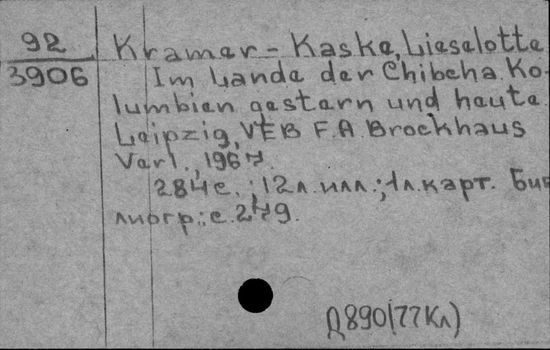 92
3906
Kramer-Kaske, Lieselotte
Im Lande der Chibcha. Ko-
lumbien gestern und heute.
Leipzig, VEB F.A. Brockhaus
Verl., 1967.
284 с.; 12 л. илл.; 1 л. карт. Биб
лиогр.: с. 279.
Д890(77Кл)